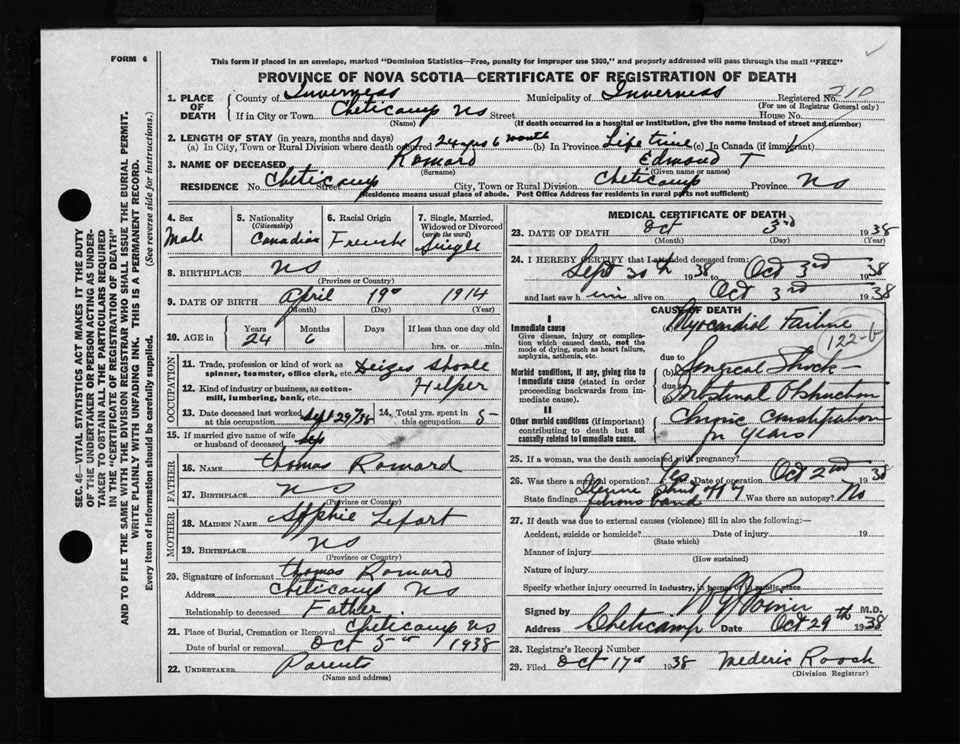 FORM 6
This form if placed in an envelope, marked "Dominion Statistics—Free, penalty for improper use $300," and properly addressed will pass through the mail "FREE"
PROVINCE OF NOVA SCOTIA—CERTIFICATE OF REGISTRATION OF DEATH
SEC. 46—VITAL STATISTICS ACT MAKES IT THE DUTY
OF THE UNDERTAKER OR PERSON ACTING AS UNDER-
TAKER TO OBTAIN ALL THE PARTICULARS REQUIRED
IN THE "CERTIFICATE OF REGISTRATION OF DEATH"
AND TO FILE THE SAME WITH THE DIVISION REGISTRAR WHO SHALL ISSUE THE BURIAL PERMIT.
WRITE PLAINLY WITH UNFADING INK. THIS IS A PERMANENT RECORD.
Every item of information should be carefully supplied. (See reverse side for instructions.)
1. PLACE OF DEATH County of Inverness Municipality of Inverness Registered No. 210
(For use of Registrar General only)
If in City or Town Cheticamp NS Street House No.
(Name) (If death occurred in a hospital or institution, give the name instead of street and number)
2. LENGTH OF STAY (in years, months and days)
(a) In City, Town or Rural Division where death occurred 24 yrs 6 month (b) In Province Life time (c) In Canada (if immigrant)
3. NAME OF DECEASED Romard Edmond T
(Surname) (Given name or names)
RESIDENCE No. Cheticamp Street City, Town or Rural Division Cheticamp Province NS
(Residence means usual place of abode. Post Office Address for residents in rural parts not sufficient)
4. Sex Male
5. Nationality (Citizenship) Canadian
6. Racial Origin French
7. Single, Married, Widowed or Divorced (write the word) Single
8. BIRTHPLACE NS
(Province or Country)
9. DATE OF BIRTH April 19 1914
(Month) (Day) (Year)
10. AGE in Years 24 Months 6 Days If less than one day old hrs. or min.
OCCUPATION
11. Trade, profession or kind of work as spinner, teamster, office clerk, etc.
12. Kind of industry or business, as cotton-mill, lumbering, bank, etc. Helper
13. Date deceased last worked at this occupation Sept 29/38 14. Total yrs. spent in this occupation 5
15. If married give name of wife or husband of deceased
FATHER
16. NAME Thomas Romard
17. BIRTHPLACE NS
(Province or Country)
MOTHER
18. MAIDEN NAME Sophie Lefort
19. BIRTHPLACE NS
(Province or Country)
20. Signature of informant Thomas Romard
Address Cheticamp NS
Relationship to deceased Father
21. Place of Burial, Cremation or Removal Cheticamp NS
Date of burial or removal Oct 5 1938
22. UNDERTAKER Parents
(Name and address)
MEDICAL CERTIFICATE OF DEATH
23. DATE OF DEATH Oct 3rd 1938
(Month) (Day) (Year)
24. I HEREBY CERTIFY that I attended deceased from:
Sept 30th 1938 to Oct 3rd 1938
and last saw him alive on Oct 3rd 1938
CAUSE OF DEATH
I
Immediate cause
Give disease, injury or complication which caused death, not the mode of dying, such as heart failure, asphyxia, asthenia, etc.
Myocardial Failure
122-b
Morbid conditions, if any, giving rise to immediate cause (stated in order proceeding backwards from immediate cause).
due to
(b) Surgical Shock
due to
(c) Intestinal Obstruction
II
Other morbid conditions (if important) contributing to death but not causally related to immediate cause.
Chronic Constipation
for years
25. If a woman, was the death associated with pregnancy?
26. Was there a surgical operation? Yes Date of operation Oct 2nd 1938
State findings fibrous band Was there an autopsy? No
27. If death was due to external causes (violence) fill in also the following:—
Accident, suicide or homicide? Date of injury 19
(State which)
Manner of injury
(How sustained)
Nature of injury
Specify whether injury occurred in industry, in home or in public place
Signed by M.D.
Address Cheticamp Date Oct 29th 1938
28. Registrar's Record Number
29. Filed Oct 17 1938 Mederic Roach
(Division Registrar)